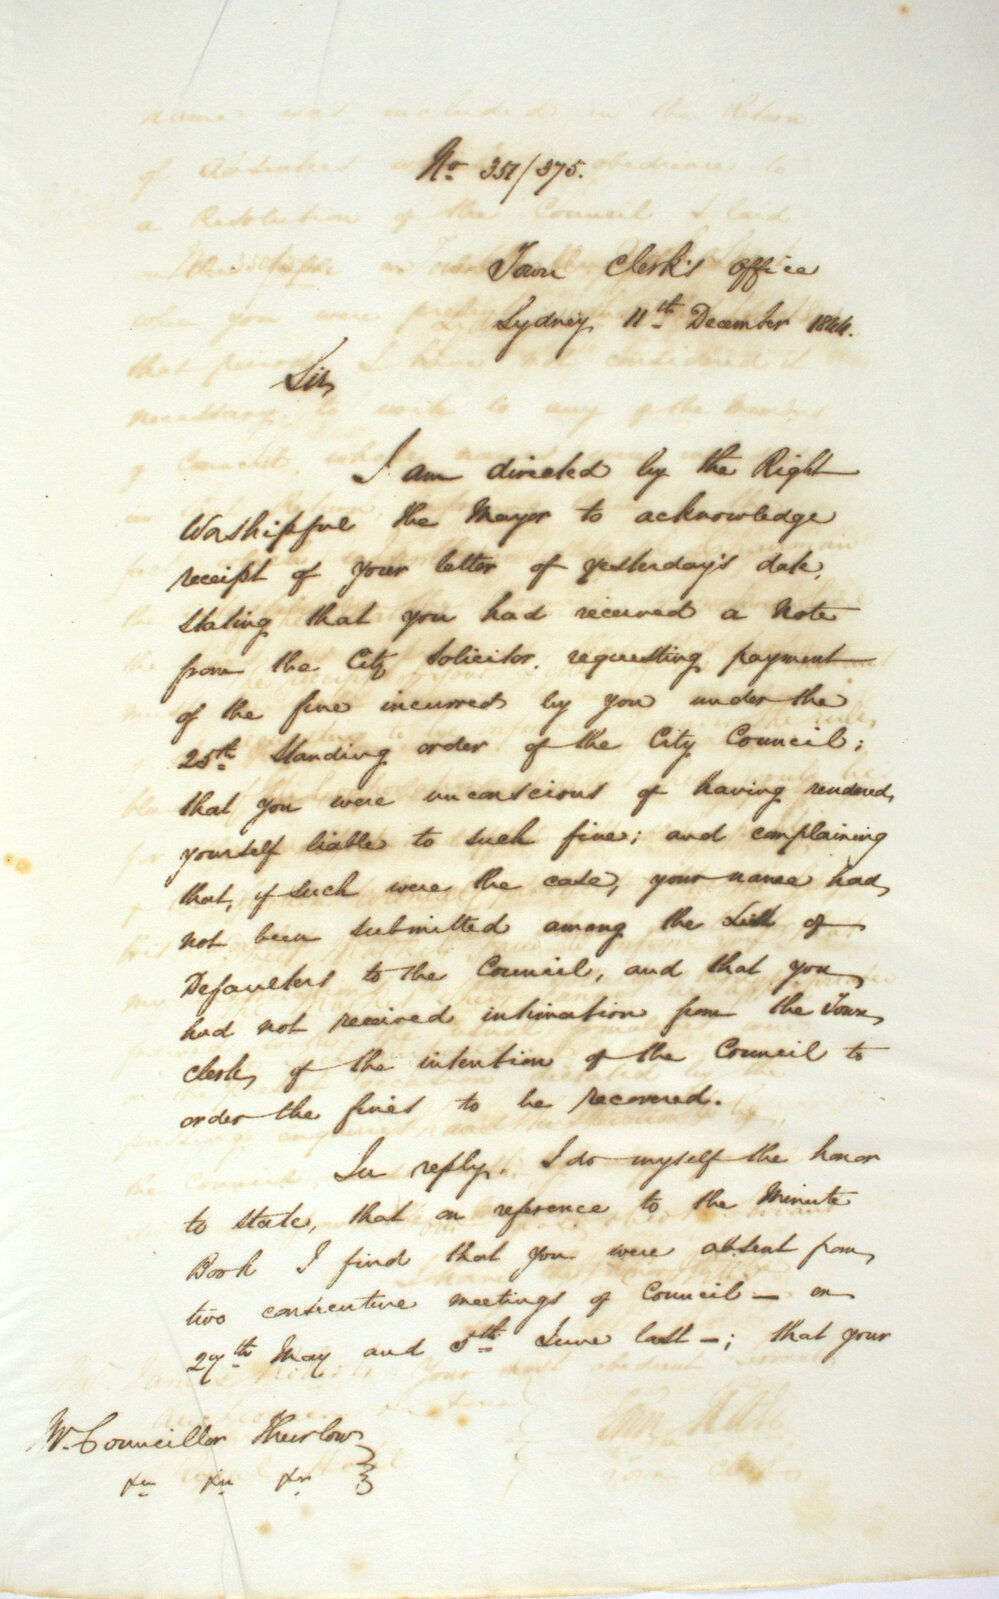 No. 351/375.
Town Clerk's Office
Sydney 11th December 1844.
Sir,
I am directed by the Right
Worshipful the Mayor to acknowledge
receipt of your letter of yesterday's date,
stating that you had received a Note
from the City Solicitor, requesting payment
of the fine incurred by you under the
25th Standing order of the City Council;
that you were unconscious of having rendered
yourself liable to such fine; and complaining
that, if such were the case, your name had
not been submitted among the List of
Defaulters to the Council, and that you
had not received intimation from the Town
Clerk, of the intention of the Council to
order the fines to be recovered.
In reply, I do myself the honor
to state, that on reference to the Minute
Book I find that you were absent from
two consecutive meetings of Council – on
27th May and 5th June last –; that your
Mr. Councillor Thurlow